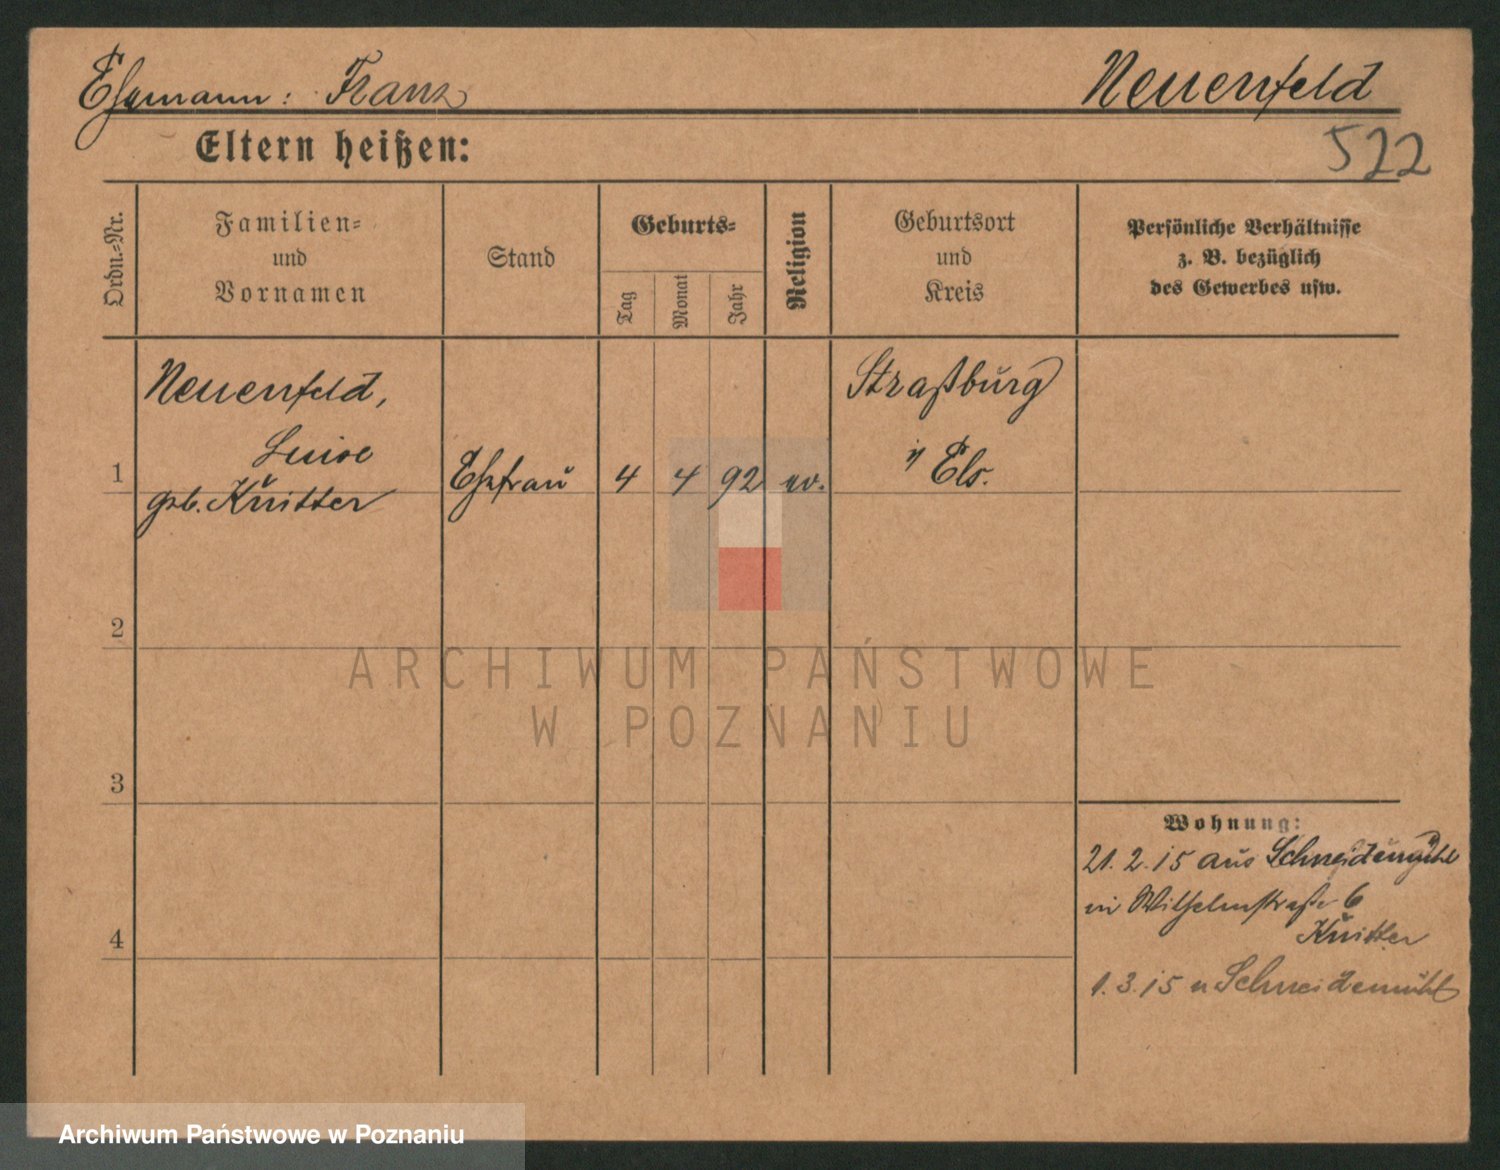 Ehemann: Franz
Neuenfeld
522
Eltern heißen:
Ordn.-Nr.
Familien-
und
Vornamen
Stand
Geburts-
Tag
Monat
Jahr
Religion
Geburtsort
und
Kreis
Persönliche Verhältnisse
z. B. bezüglich
des Gewerbes usw.
1
Neuenfeld,
Luise
geb. Knitter
Ehefrau
4
4
92
ev.
Straßburg
i/ Els.
2
3
4
Wohnung:
21.2.15 aus Schneidemühl
in Wilhelmstraße 6
Knitter
1.3.15 n Schneidemühl
ARCHIWUM PAŃSTWOWE
W POZNANIU
Archiwum Państwowe w Poznaniu